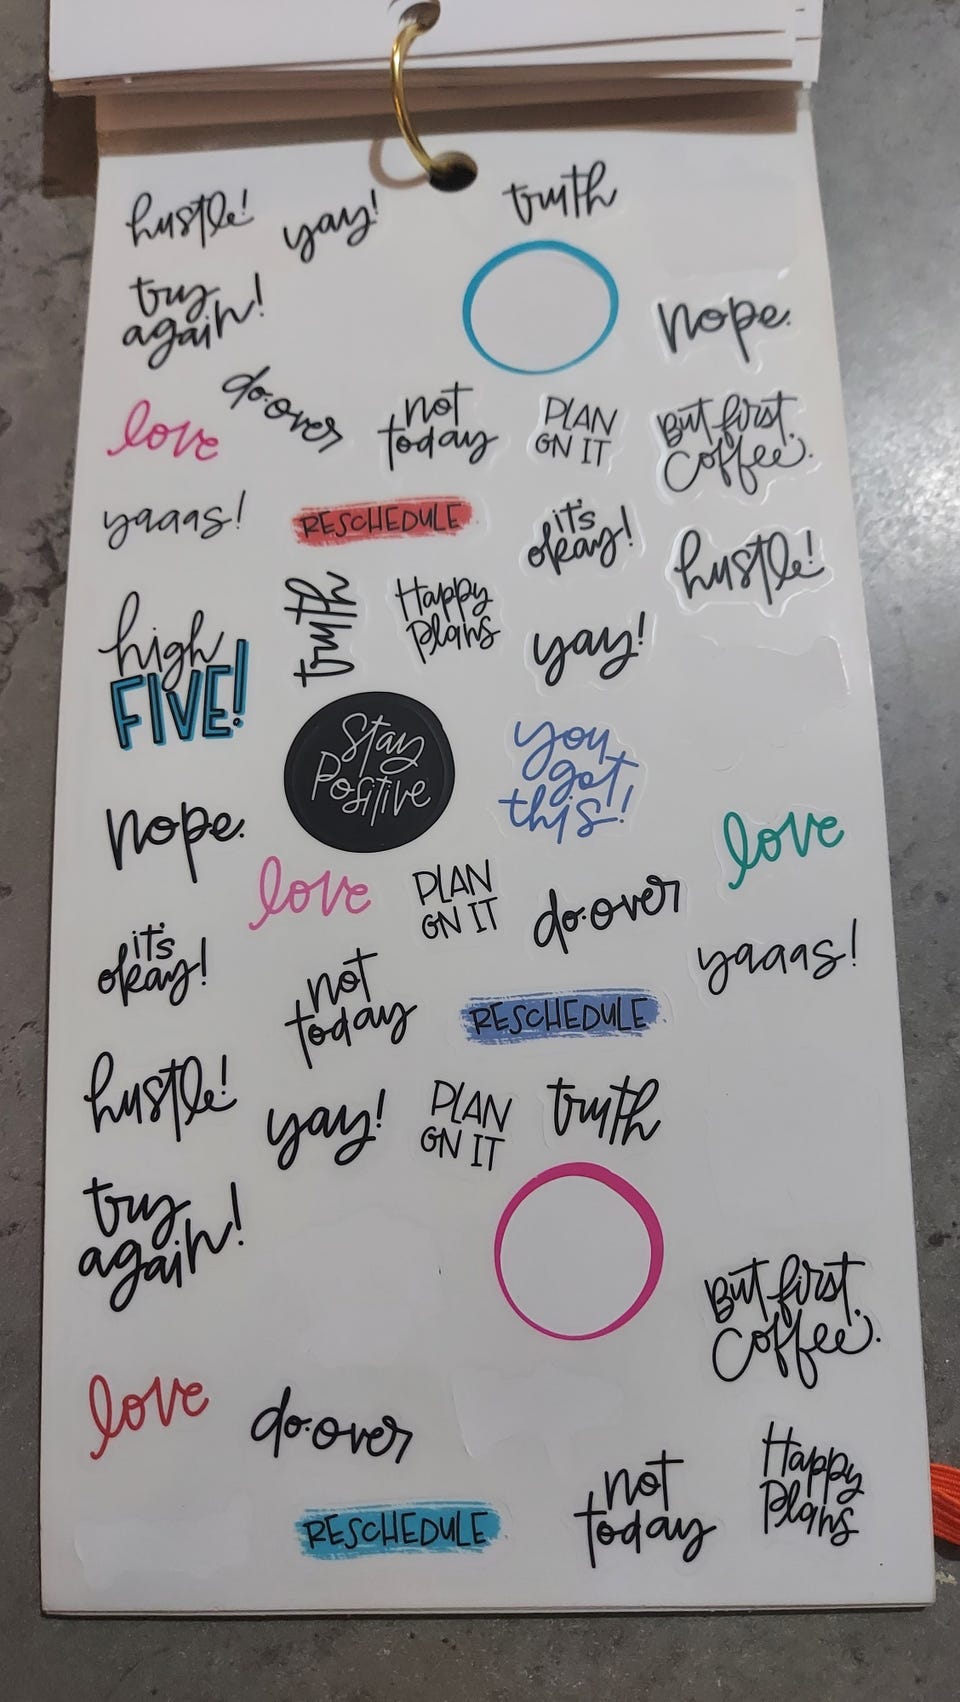 hustle!
yay!
truth
try
again!
nope.
love
do-over
not
today
PLAN
ON IT
But first,
Coffee.
yaaas!
RESCHEDULE
it's
okay!
hustle!
high
FIVE!
truth
Happy
Plans
yay!
Stay
Positive
you
got
this!
nope.
love
PLAN
ON IT
do-over
love
it's
okay!
not
today
RESCHEDULE
yaaas!
hustle!
yay!
PLAN
ON IT
truth
try
again!
But first,
Coffee.
love
do-over
RESCHEDULE
not
today
Happy
Plans